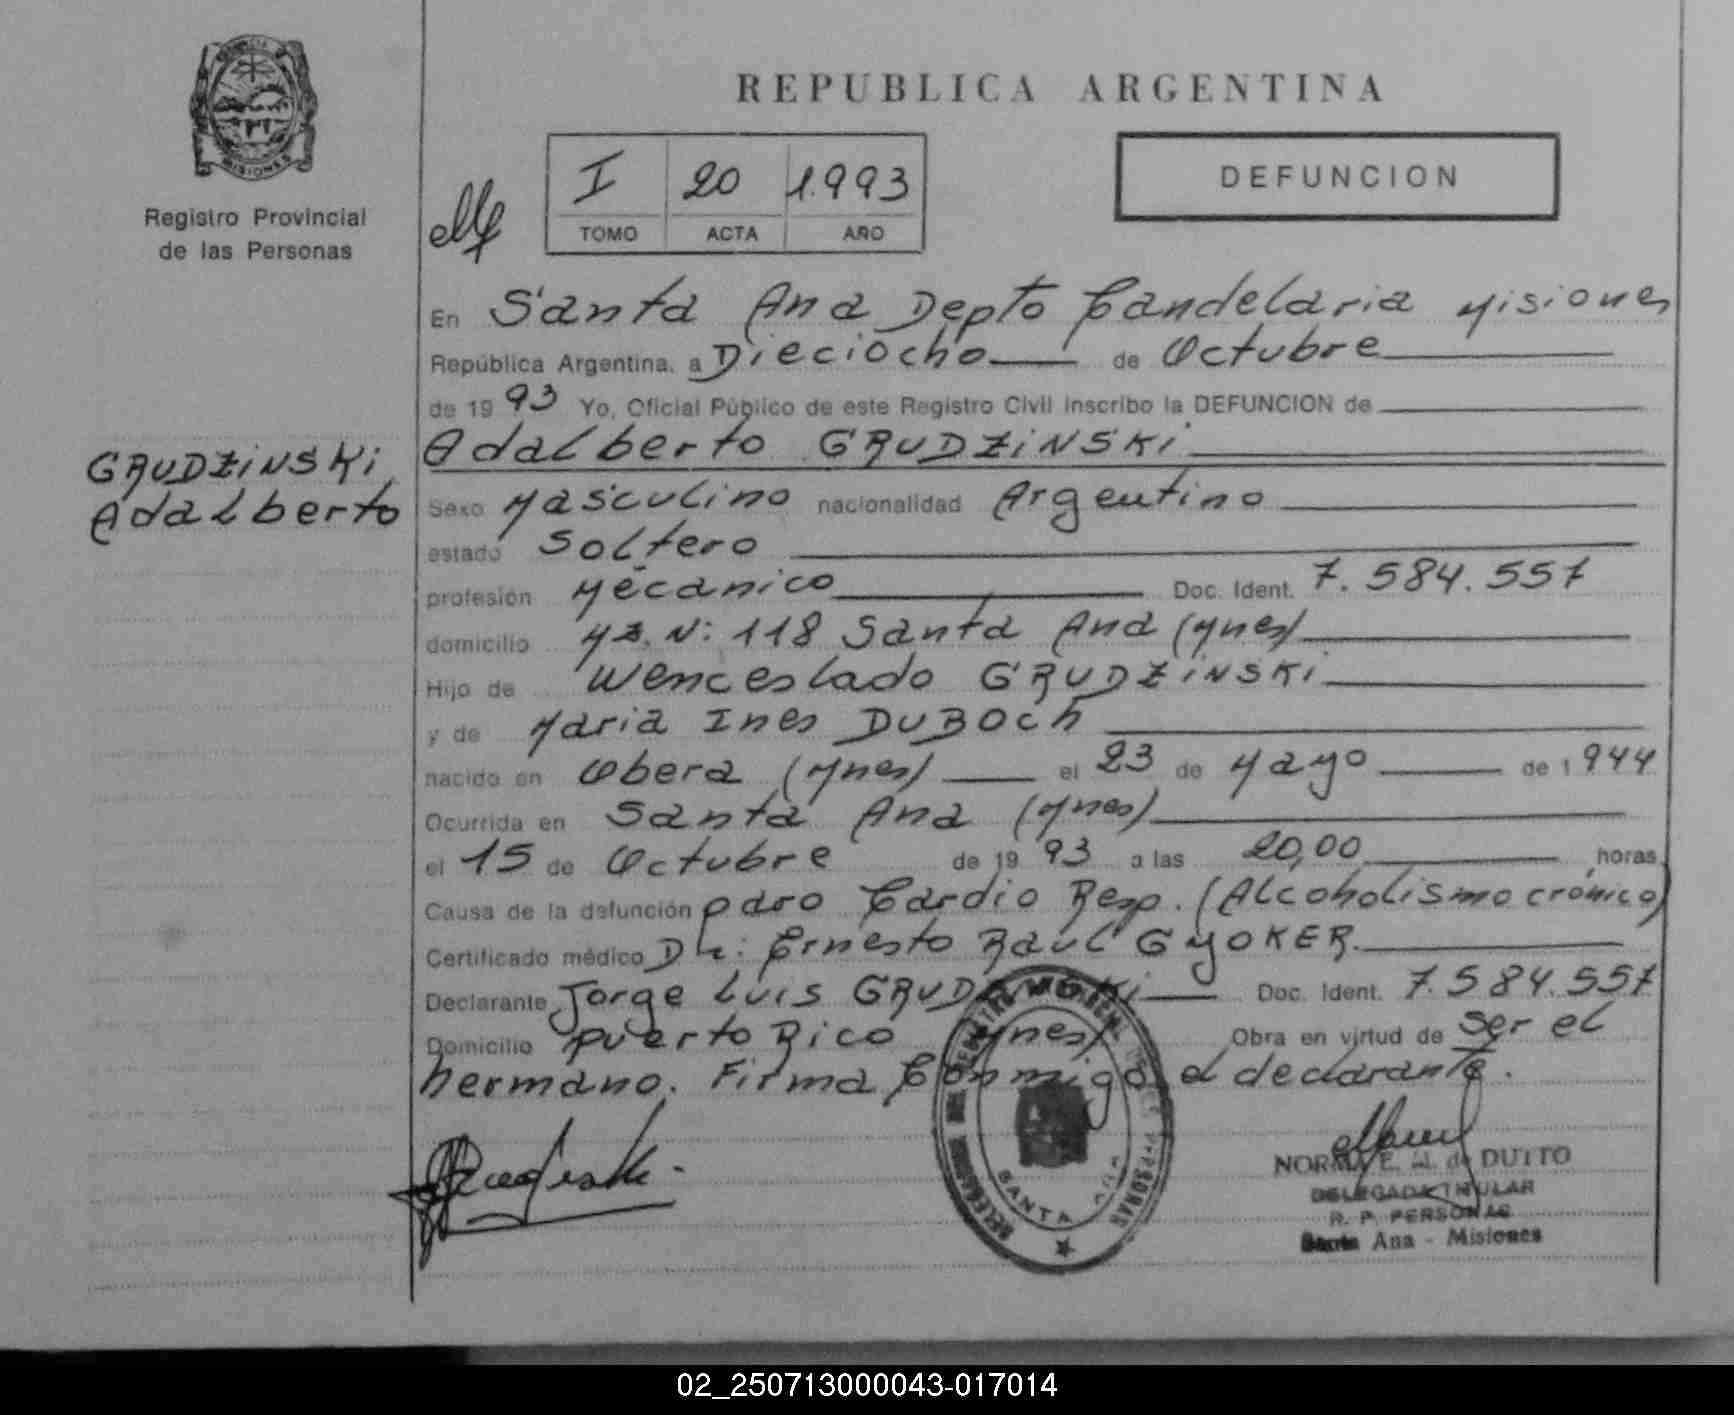 PROVINCIA DE
MISIONES
Registro Provincial
de las Personas
REPUBLICA ARGENTINA
I 20 1.993
TOMO ACTA AÑO
DEFUNCION
En Santa Ana Depto Candelaria Misiones
República Argentina, a Dieciocho de Octubre
de 1993 Yo, Oficial Público de este Registro Civil inscribo la DEFUNCION de
Adalberto GRUDZiNSKi
GRUDZiNSKi
Adalberto
Sexo Masculino nacionalidad Argentino
estado Soltero
profesión Mécanico Doc. Ident. 7.584.557
domicilio Mz. N: 118 Santa Ana (Mnes)
Hijo de Wenceslado GRUDZiNSKi
y de Maria Ines DUBOCh
nacido en Obera (Mnes) el 23 de Mayo de 1944
Ocurrida en Santa Ana (Mnes)
el 15 de Octubre de 1993 a las 20,00 horas
Causa de la defunción paro Cardio Resp. (Alcoholismo crónico)
Certificado médico Dr: Ernesto Raul GYOKER.
Declarante Jorge Luis GRUDZiNSKi Doc. Ident. 7.584.557
Domicilio puerto Rico Mnes) Obra en virtud de Ser el
hermano. Firma Conmigo el declarante.
SANTA ANA
NORMA E. M. de DUTTO
DELEGADA TITULAR
R. P. PERSONAS
Santa Ana - Misiones
02_250713000043-017014